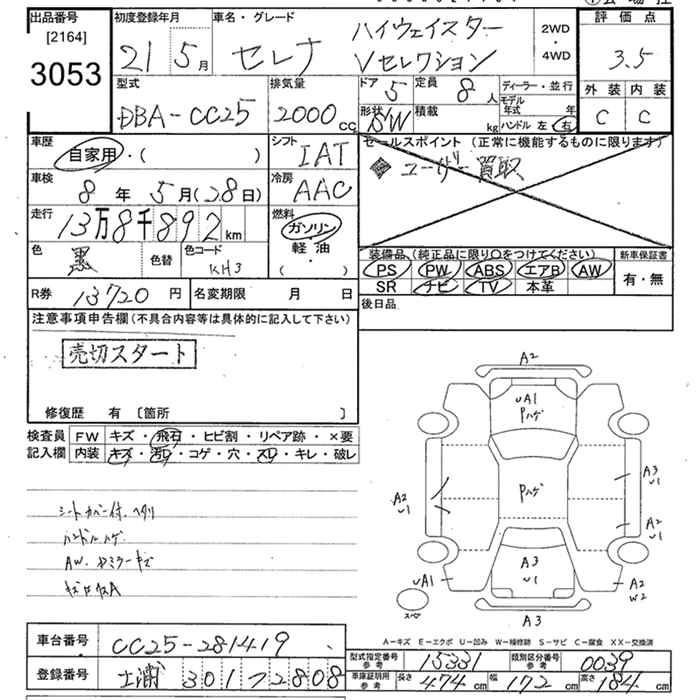 出品番号
[2164]
3053
初度登録年月
21 5月
車名・グレード
セレナ
ハイウェイスター
Vセレクション
2WD
・
4WD
評価点
3.5
外装 内装
C C
型式
DBA-CC25
排気量
2000cc
ドア 5
定員 8人
形状 SW
積載 kg
ディーラー・並行
モデル年式 年
ハンドル 左 右
車歴
自家用・( )
シフト
IAT
セールスポイント (正常に機能するものに限ります)
ユーザー買取
車検
8年5月(28日)
冷房
AAC
走行
13万8千892km
燃料
ガソリン
軽油
( ・ )
色
黒
色替
色コード
KH3
装備品 (純正品に限り○をつけてください)
PS PW ABS エアB AW
SR ナビ TV 本革
新車保証書
有・無
R券 13720円
名変期限 月 日
後日品
注意事項申告欄(不具合内容等は具体的に記入して下さい)
売切スタート
修復歴 有 〔箇所 〕
検査員記入欄
FW キズ・飛石・ヒビ割・リペア跡・×要
内装 キズ・汚れ・コゲ・穴・スレ・キレ・破レ
シートカバー付 ヘタリ
ハンドルハゲ
AW. ドアミラーキズ
A2
UA1
Pハゲ
Pハゲ
A3
U1
A2
U1
A2
U1
A3
U1
UA1
A2
W2
スペア
A3
A-キズ E-エクボ U-凹み W-補修跡 S-サビ C-腐食 XX-交換済
車台番号
CC25-281419
登録番号
土浦 301 ス 2808
型式指定番号 参考
15331
類別区分番号 参考
0039
車庫証明用 参考
長さ 474cm
幅 172cm
高さ 184cm